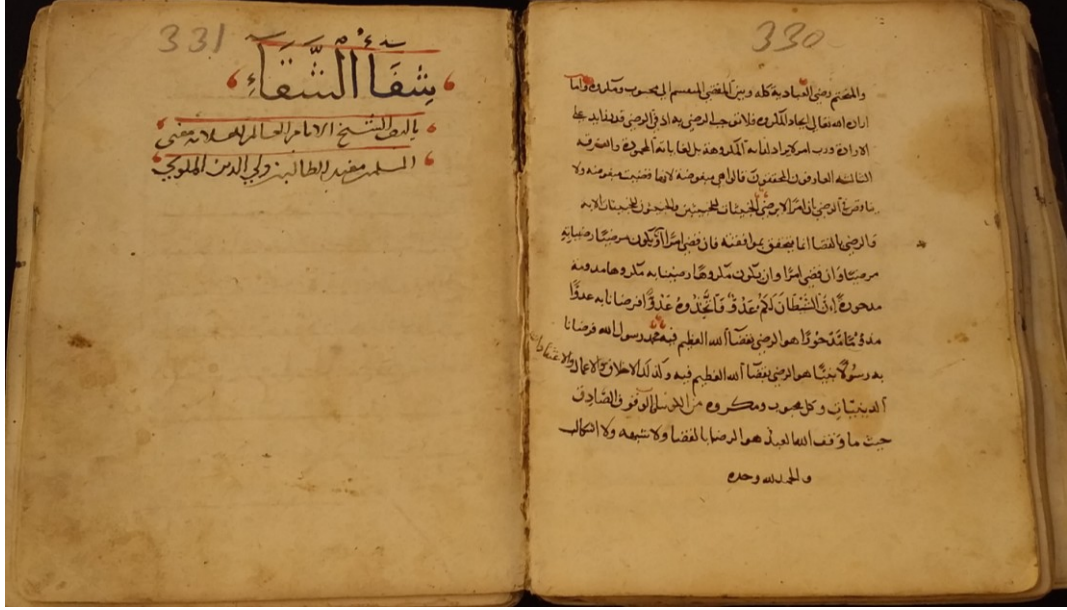 330
والمقتم رضي العبادية كله وبين المقضي المنقسم الي محبوب ومكروه واما
ارادة الله تعالي ايجاد المكروه فلا تن حب الرضي به اذ في الرضي قدر زايد علي
الارادة ورب امر لا يراد لذاته المكروهة بل لغاياته المحمودة والفرقة
الثالثة العارفون المحققون قالوا هي مبغوضة لانها قضيت مبغوضة ولا
يناقض في الرضي بان امرا لا يرضي الخبيثات للخبيثين والخبيثون للخبيثات الاية
فالرضي بالقضا انما يتحقق بموافقته فان قضي امرا ان يكون مرضيا رضينا به
مرضيا وان قضي امرا وان يكون مكروها رضينا به مكروها مدونة
مدحورة اِنَّ الشَّيْطَانَ لَكُمْ عَدُوٌّ فَاتَّخِذُوهُ عَدُوًّا فرضانا به عدوًّا
مذؤمًا مَّدْحُورًا هو الرضي بقضآ الله العظيم فيه محمد رسول الله فرضانا
به رسولًا بنبيًّا هو الرضي بقضآ الله العظيم فيه وكذلك الاخلاق والاعمال والاعتقادات
الدينيات وكل محبوب ومكروه من الوقوف الصَّادق
حيث ما وقف الله العبد هو الرضا بالقضا ولا شبهه ولا اشكال
والحمد لله وحده
331
شِفَآءُ الشَّقَآءِ
تاليف الشيخ الامام العالم العلامة مفتي
المسلمين مفيد الطالبين ولي الدين الملوكي